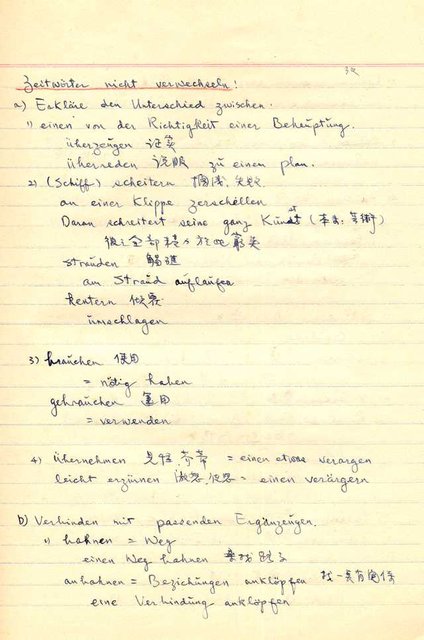 3a
Zeitwörter nicht verwechseln!
a) Erkläre den Unterschied zwischen.
1) einen von der Richtigkeit einer Behauptung.
überzeugen
überreden 說服 zu einem plan.
2) (Schiff) scheitern 擱淺, 失敗
an einer Klippe zerschellen
Daran scheitert seine ganz Kunst
stranden
am Strand auflaufen
kentern
umschlagen
3) brauchen 使用
= nötig haben
gebrauchen 運用
= verwenden
4) übernehmen = einen etwas verargen
leicht erzürnen = einen verärgern
b) Verbinden mit passenden Ergänzungen.
1) bahnen = Weg
einen Weg bahnen
anbahnen = Beziehungen anklöpfen
eine Verbindung anklöpfen